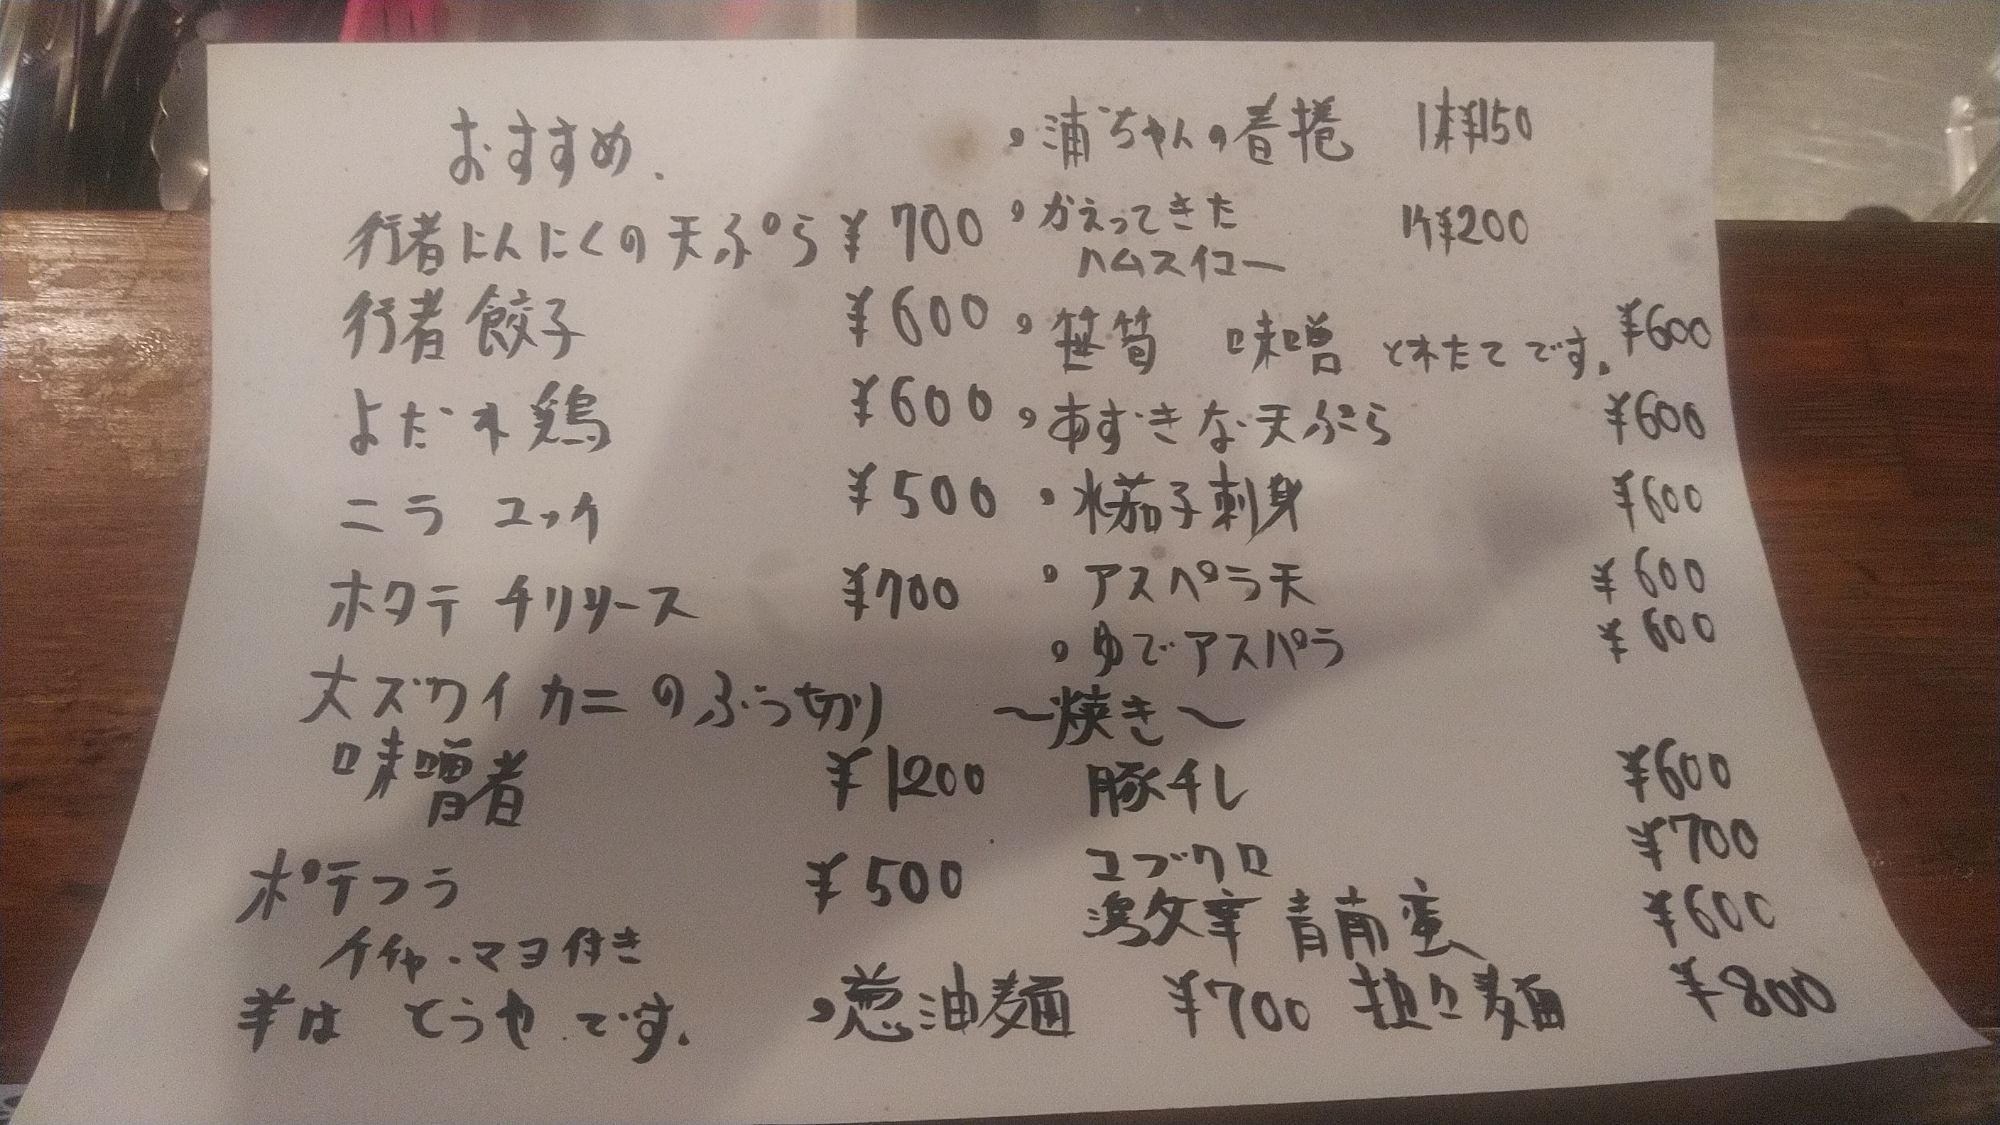 おすすめ.
行者にんにくの天ぷら ¥700
行者 餃子 ¥600
よだれ鶏 ¥600
ニラ ユッケ ¥500
ホタテ チリソース ¥700
大ズワイカニのぶつ切り
味噌煮 ¥1200
ポテフラ ¥500
ケチャ・マヨ付き
羊は とうや です.
浦ちゃんの春捲 1本¥150
かえってきた 1ケ¥200
ハムスイコー
笹筍 味噌 とれたてです. ¥600
あずきな天ぷら ¥600
水茄子刺身 ¥600
アスパラ天 ¥600
ゆでアスパラ ¥600
〜焼き〜
豚チレ ¥600
コブクロ ¥700
激辛 青南蛮 ¥600
葱油麺 ¥700 担々麺 ¥800